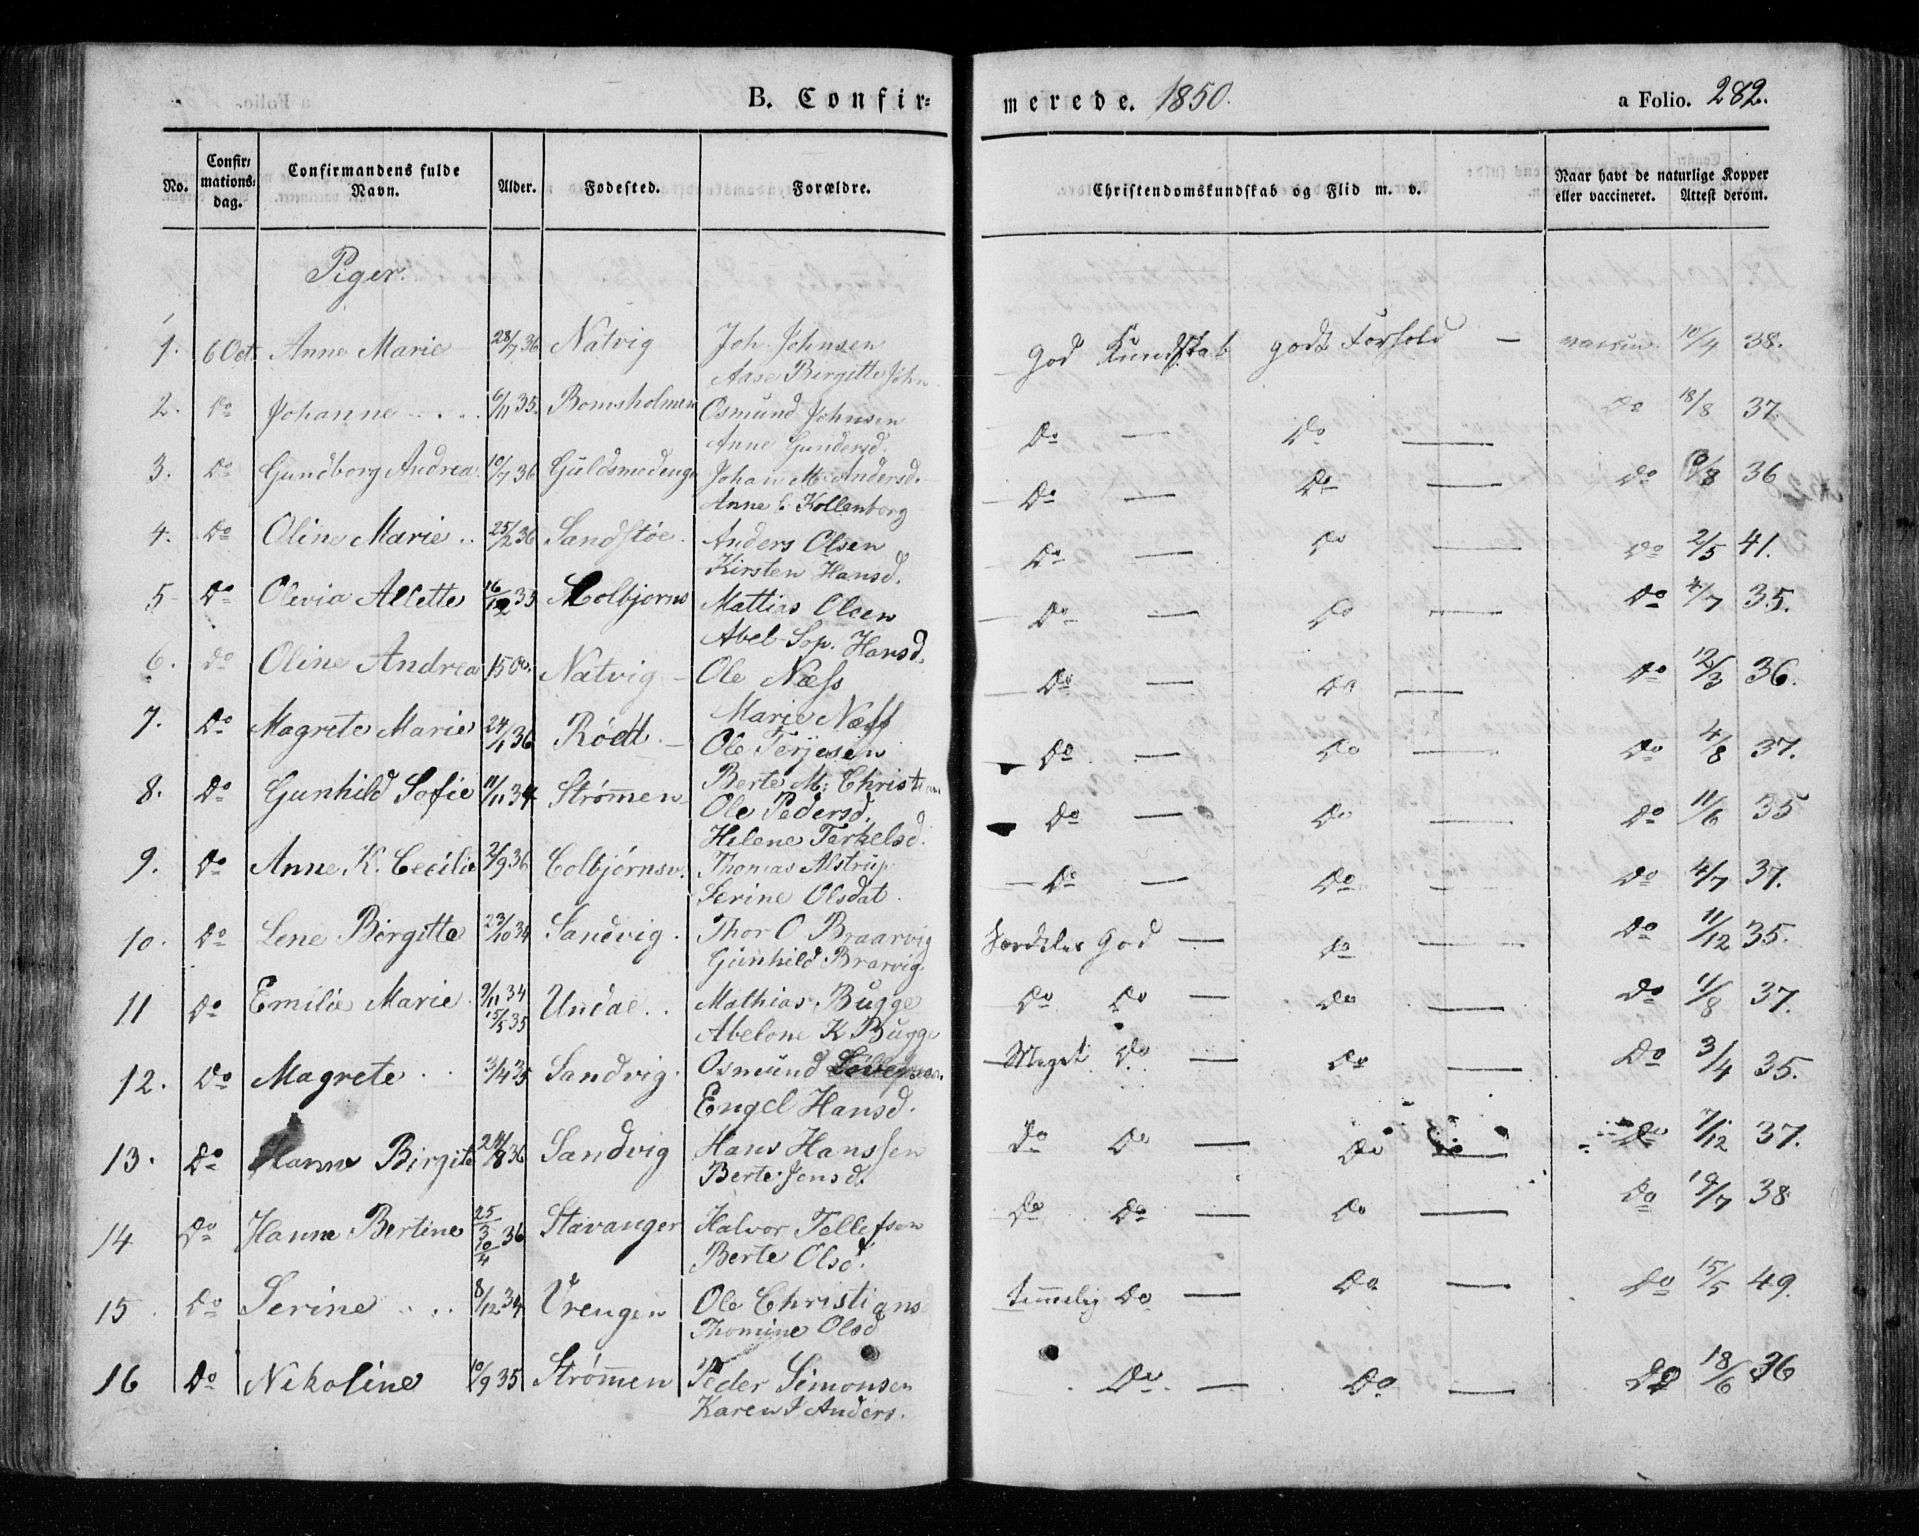 B. Confirmerede. 1850. a Folio. 282.
No. Confirmationsdag. Confirmandens fulde Navn. Alder. Fødested. Forældre. Christendomskundskab og Flid m. v. Naar havt de naturlige Kopper eller vaccineret. Attest derom.
Piger.
1. 6 Oct. Anne Marie 28/7 36 Natvig Joh. Johnsen God Kundskab godt Forhold — 10/4 38.
Aase Birgitte John
2. Do Johanne 6/11 35. Bomsholmen Osmund Johnsen Do — Do — Do 18/8 37.
Anne Gundersd.
3. Do Gundborg Andrea 10/7 36 Guldsmedeng Johan M. Andersd. Do — Do — Do 36
Anne C. Kollenborg
4. Do Oline Marie 25/2 36 Sandstøe Anders Olsen Do — Do — Do 2/5 41.
Kirsten Hansd.
5 Do Olevia Allette 16/12 35 Colbjørns Mattias Olsen Do — Do — Do 4/7 35.
Abel Sop. Hansd.
6. Do Oline Andrea Natvig Ole Næss Do — Do — Do 12/3 36.
Marie Næss
7. Do Magrete Marie 24/1 36 Rödt Ole Terjesen Do — Do — Do 4/8 37.
Berte M. Christian
8. Do Gunhild Sofie 11/11 34 Strømmen Ole Pedersd. Do — Do — Do 11/6 35
Helene Terkelsd.
9. Do Anne K. Cecilie 2/9 36 Colbjörnsv. Thomas Alstrup Do — Do — Do 4/7 37.
Serine Olsdat.
10. Do Lene Birgitte 23/10 34 Sandvig Thor O Braarvig Særdeles God — Do Do 11/12 35.
Gunhild Brarvig
11 Do Emilie Marie 9/11 34 Undal Mathias Bugge Do Do — Do — Do 11/8 37.
15/5 35 Abelone K Bugge
12. Do Magrete 3/4 35 Sandvig Osmund Meget Do — Do — Do 3/4 35.
Engel Hansd.
13. Do Hanne Birgite 24/8 36 Sandvig Hans Hanssen Do Do — Do — Do 7/12 37.
Berte Jensd.
14 Do Hanne Bertine 25/3 10/4 36 Stavanger Halvor Tellefsen Do Do — Do — Do 38
Berte Olsd.
15 Do Serine 8/12 34 Vrengen Ole Christians temmelig Do — Do — Do 15/5 49.
Thomine Olsd
16 Do Nikoline 10/9 35 Strømmen Peder Simonsen Do — Do — Do 18/6 36
Karen J Anders.